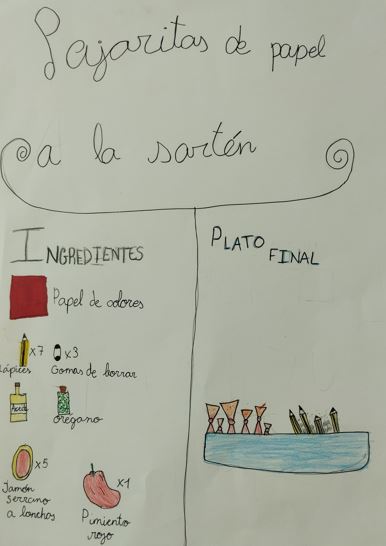 Pajaritas de papel
a la sartén
INGREDIENTES
Papel de colores
x7
x3
Lápices
Gomas de borrar
Aceite
orégano
x5
Jamón
serrano
a lonchas
x1
Pimiento
rojo
PLATO
FINAL